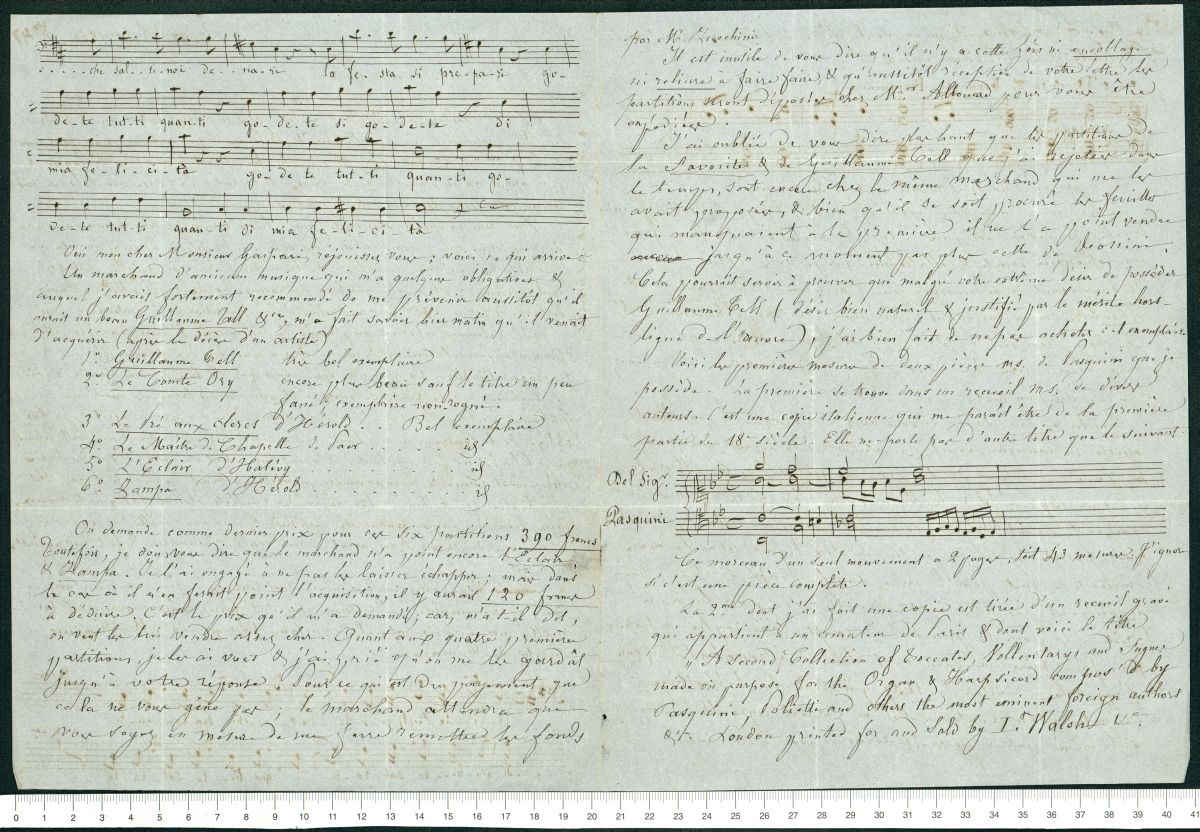 . . . . che sal - ti - noi de - na - ri la fe - sta si pre - pa - ri go -
de - te tut - ti quan - ti go - de - te si go - de - te di
mia fe - li - ci - tà go - de te tut - ti quan - ti go -
de - te tut - ti quan - ti di mia fe - li - ci - tà
Oui mon cher Monsieur Gaspari, rejouissez vous; voici ce qui arrive:
Un marchand d'ancienne musique qui m'a quelque obligations &
auquel j'avois fortement recommandé de me prévenir aussitôt qu'il
aurait un beau Guillaume Tell &ca, m'a fait savoir hier matin qu'il venait
d'acquerir (après le décès d'un artiste)
1o Guillaume Tell très bel exemplaire
2o Le Comte Ory encore plus beau sauf le titre un peu
fané: exemplaire non rogné
3o Le Pré aux clercs d'Hérold . . Bel exemplaire
4o Le Maître de Chapelle de Paer . . . . . id
5o L'Eclair d'Halévy . . . . . . . . . id
6o Zampa d'Hérold . . . . . . . . . id
On demande comme dernier prix pour ces six partitions 390 francs
Toutefois, je dois vous dire que le marchand n'a point encore l'Eclair
& Zampa. Je l'ai engagé à ne pas les laisser échapper; mais dans
le cas où il n'en ferait point l'acquisition, il y aurait 120 francs
à déduire. C'est le prix qu'il m'a demandé; car, m'a-t-il dit,
on veut les lui vendre assez cher. Quant aux quatre premières
partitions, je les ai vues & j'ai prié qu'on me les gardât
jusqu'à votre réponse. Pour ce qui est du payement, que
cela ne vous gêne pas; le marchand attendra que
vous soyez en mesure de me faire remettre les fonds
par Mr. Zucchini
Il est inutile de vous dire qu'il n'y a cette fois ni encollage
ni reliure à faire faire & qu'aussitôt réception de votre lettre les
partitions seront déposées chez Mr. Allouard pour vous être
expédiées.
J'ai oublié de vous dire plus haut que les partitions de
la Favorite & de Guillaume Tell que j'ai rejetées dans
le temps, sont encore chez le même marchand qui me les
avait proposées, & bien qu'il se soit procuré les feuilles
qui manquaient à la première il ne l'a point vendue
jusqu'à ce moment pas plus celle de Rossini.
Cela pourrait servir à prouver que malgré votre extrême desir de posséder
Guillaume Tell (désir bien naturel & justifié par le mérite hors-
ligne de l'œuvre), j'ai bien fait de ne pas acheter cet exemplaire
Voici les premières mesures de deux pièces ms. de Pasquini que je
possède. La première se trouve dans un recueil ms. de divers
auteurs. C'est une copie italienne qui me paraît être de la première
partie du 18e siècle. Elle ne porte pas d'autre titre que le suivant.
Del Sigr.
Pasquini
Ce morceau d'un seul mouvement a 2 pages, soit 43 mesures. J'ignore
si c'est une pièce complète.
La 2me dont j'ai fait une copie est tirée d'un recueil gravé
qui appartient à un amateur de Paris & dont voici le titre
" A second Collection of Toccates, Vollentarys and Fugues
made on purpose for the Organ & Harpsicord compos'd by
Pasquini, Polietti and others the most eminent foreign authors
&ca. London printed for and sold by I. Walsh &ca.